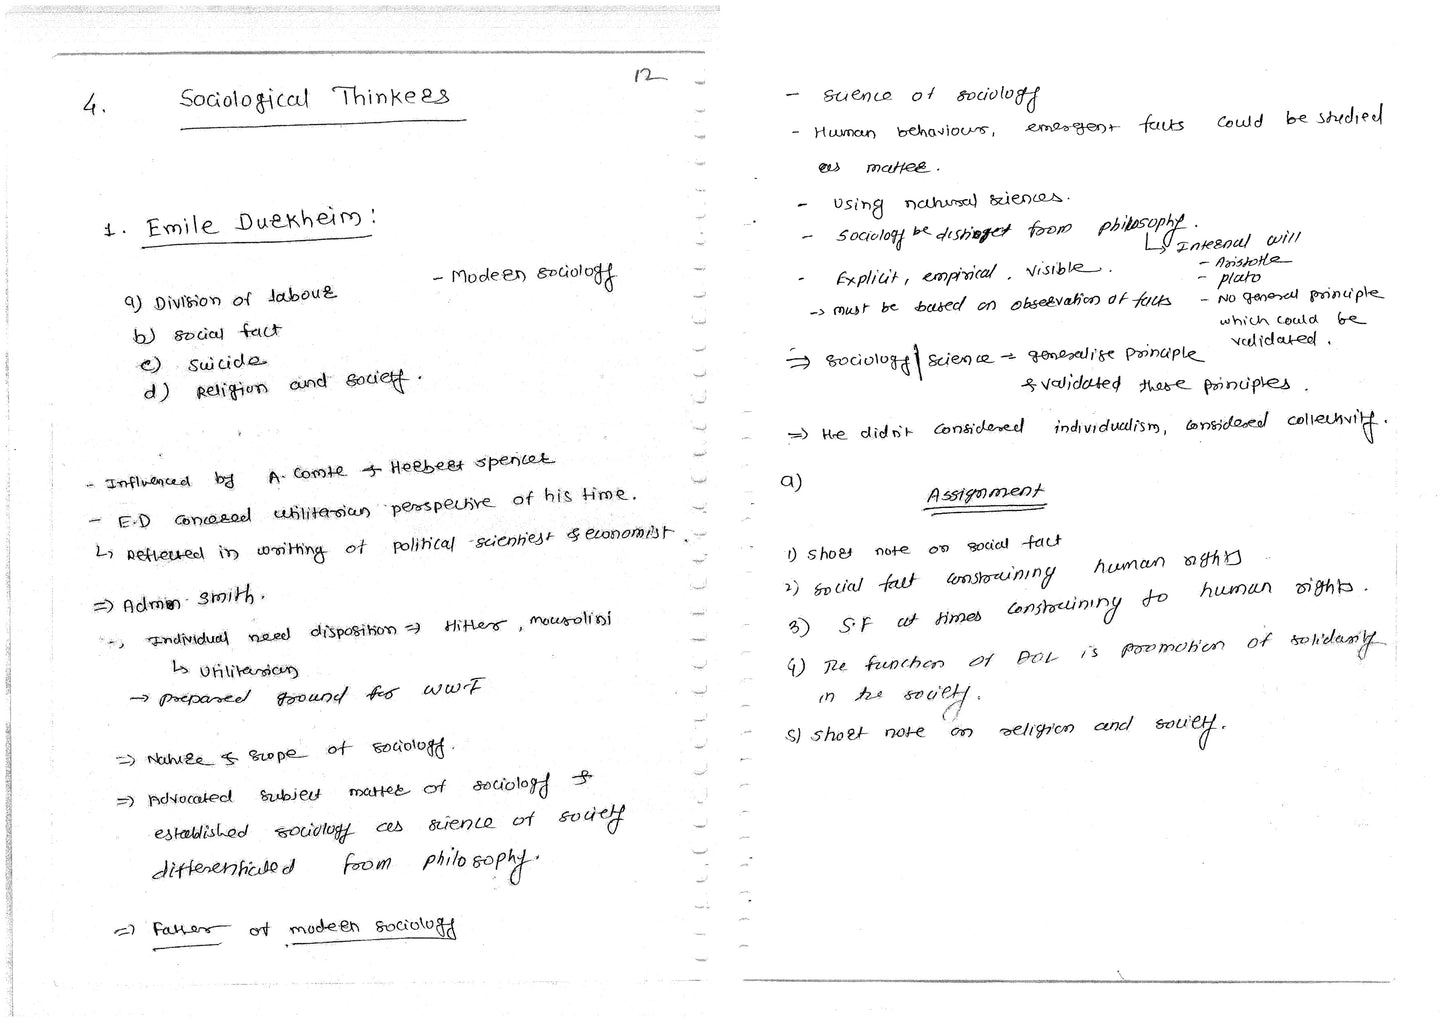 12
4. Sociological Thinkers
1. Emile Durkheim:
- Modern sociology
a) Division of labour
b) social fact
c) suicide
d) Religion and society.
- Influenced by A. Comte & Herbert spencer
- E.D utilitarian perspective of his time.
↳ Reflected in writting of political scientiest & economist.
⇒ Admn Smith.
→ Individual need disposition ⇒ Hitler, mousolini
↳ Utilitarian
→ prepared ground for WW-I
⇒ Nature & scope of sociology.
⇒ Advocated subject matter of sociology &
established sociology as science of society
differentiated from philosophy.
⇒ Father of modern sociology
- science of sociology
- Human behaviour, emergent facts could be studied
as matter.
- Using natural sciences.
- Sociology be distinget from philosophy.
↳ Internal will
- Aristotle
- plato
- No general principle
which could be
validated.
- Explicit, empirical, visible.
→ must be based on observation of facts
⇒ sociology | science → generalise principle
& validated these principles.
⇒ He didn't considered individualism, considered collectivity.
a)
Assignment
1) short note on social fact
2) social fact constraining human rights
3) S.F at times constraining to human rights.
4) The function of DOL is promotion of solidarity
in the society.
5) short note on religion and society.